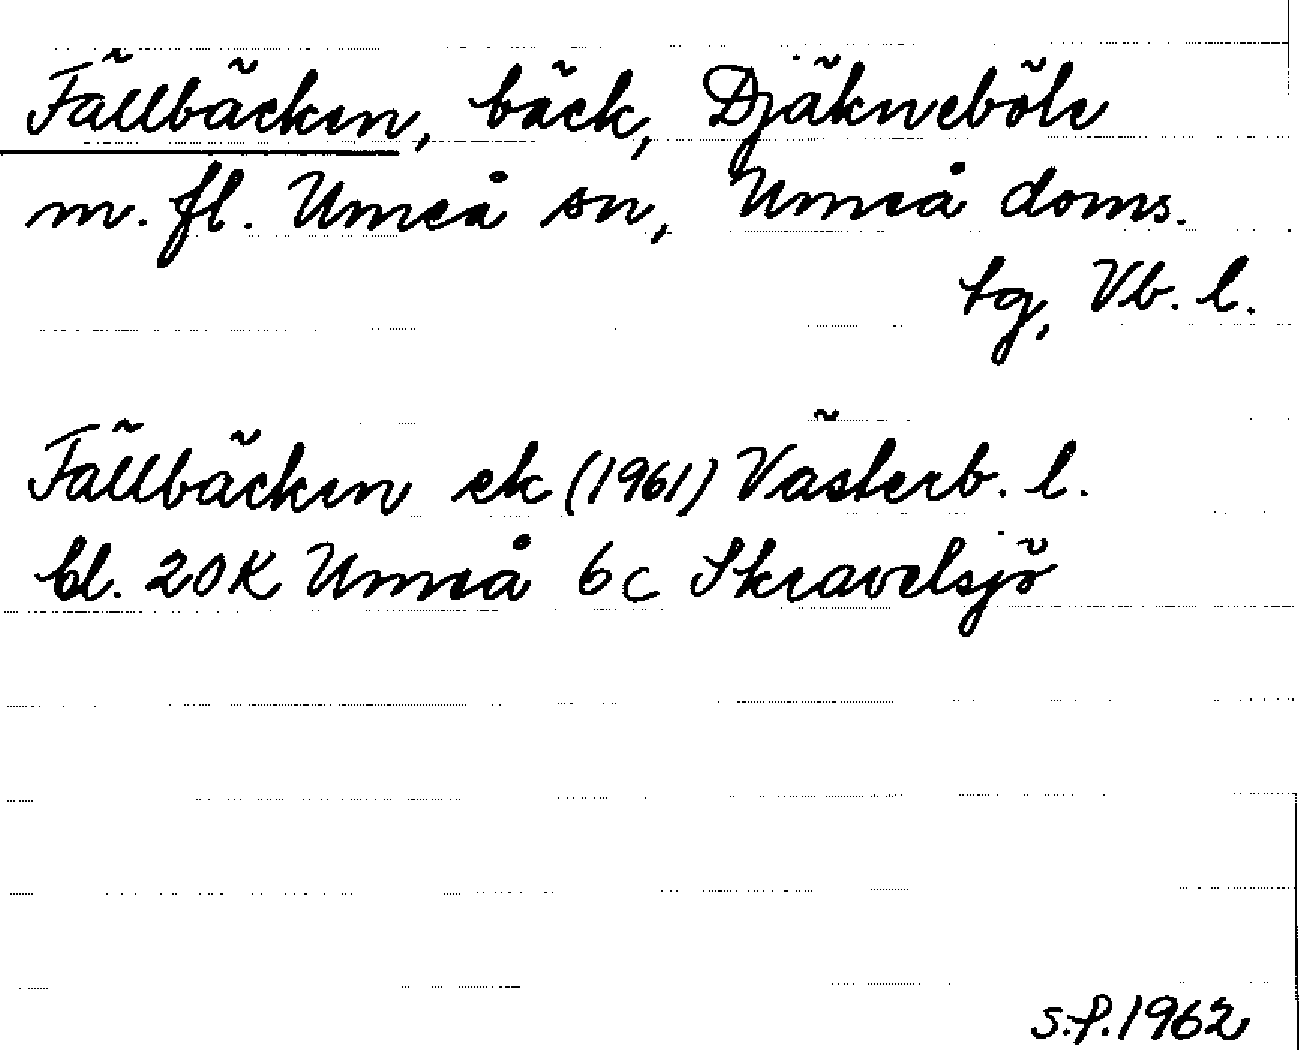 Fällbäcken, bäck, Djäkneböle
m. fl. Umeå sn, Umeå doms.
tg, Vb. l.
Fällbäcken ek (1961) Västerb. l.
bl. 20K Umeå 6c Skravelsjö
s.f. 1962